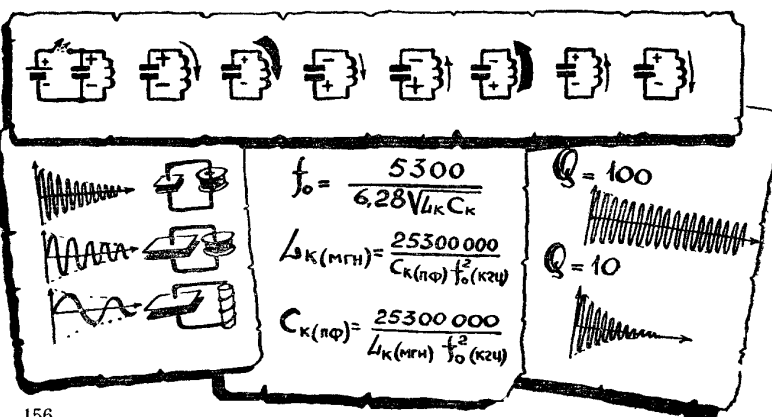 f₀ = 5300 / 6,28√LкCк
Lк(мгн) = 25300000 / Cк(пф) f₀²(кгц)
Cк(пф) = 25300 000 / Lк(мгн) f₀²(кгц)
Q = 100
Q = 10
156